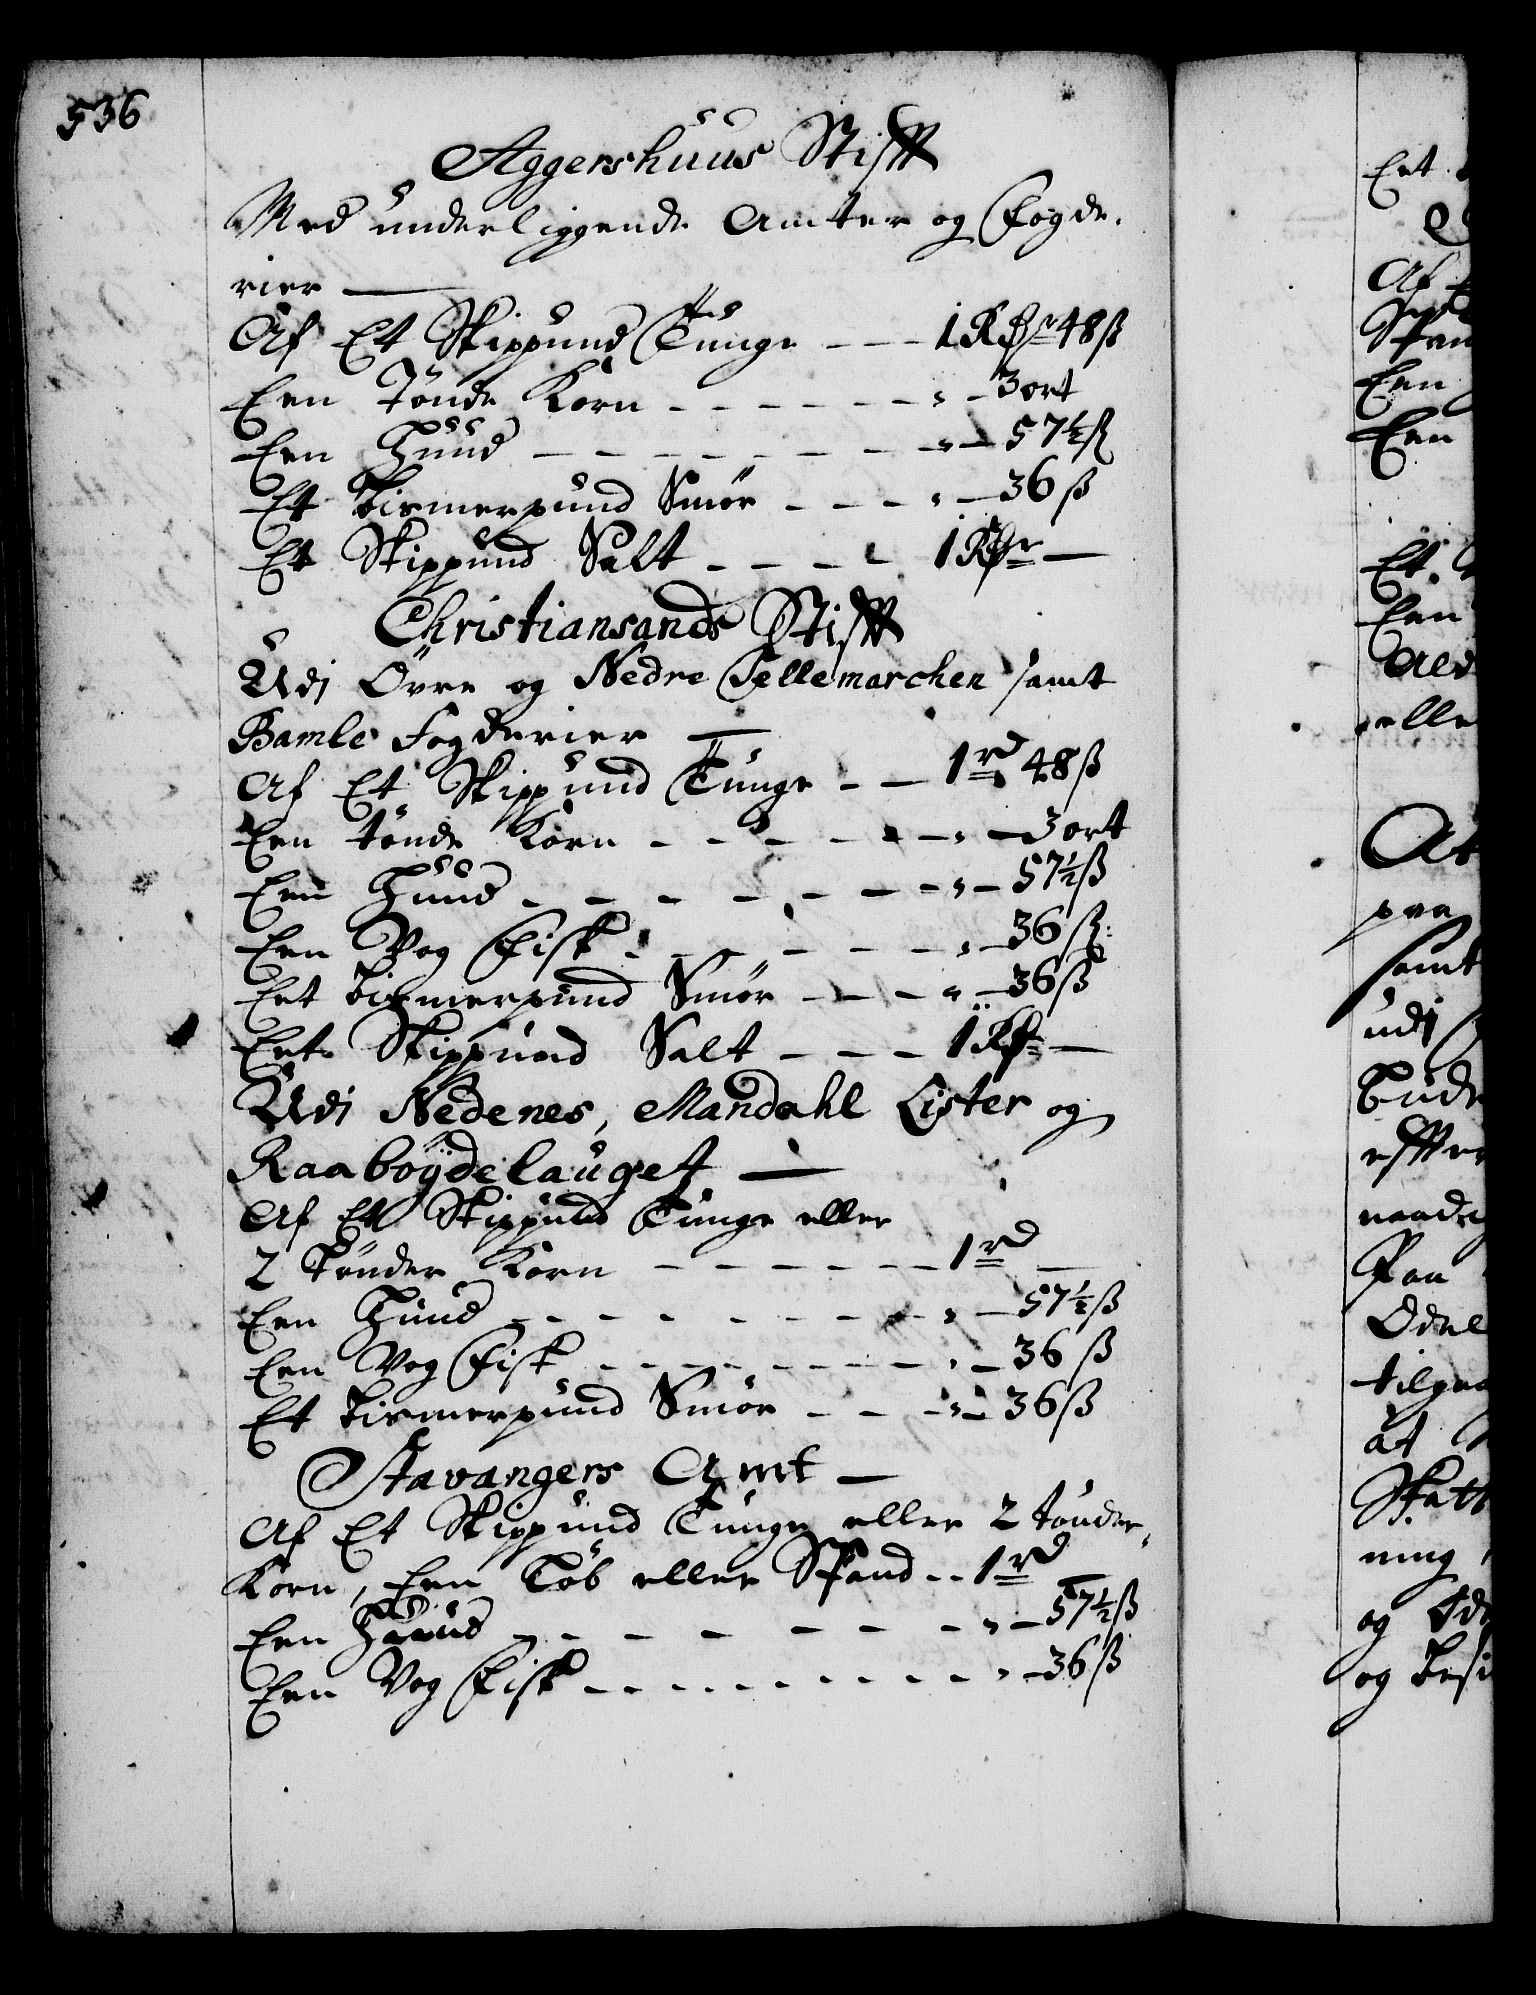 536
Aggershuus Stifft
Med underliggende Amter og Fogde-
rier
Af Et Skippund Tunge - - - 1 Rdr 48 ß
Een Tønde Korn - - - - - - „ - 3 ort
Een Huud - - - - - - - - „ - 57½ ß
Et Bismerpund Smør - - - - „ - 36 ß
Et Skippund Salt - - - - 1 Rdr -
Christiansands Stifft
Udj Øvre og Nedre Tellemarchen samt
Bamle Fogderier
Af Et Skippund Tunge - - 1 rd 48 ß
Een tønde Korn - - - - - - „ - 3 ort
Een Huud - - - - - - - „ - 57½ ß
Een Vog Fisk - - - - - - „ - 36 ß
Eet Bismerpund Smør - - - „ - 36 ß
Eet Skippund Salt - - - 1 Rdr -
Udj Nedenes, Mandahl Lister og
Raabøydelauget
Af Et Skippund Tunge eller
2 Tønder Korn - - - - - - 1 rd -
Een Huud - - - - - - - - „ - 57½ ß
Een Vog Fisk - - - - - - - „ - 36 ß
Et Bismerpund Smør - - - „ - 36 ß
Stavangers Amt
Af Et Skippund Tunge eller 2 tønder
Korn, Een Løb eller Spand - - 1 rd -
Een Huud - - - - - - - „ - 57½ ß
Een Vog Fisk - - - - - - - - „ - 36 ß
Eet
Af
Een
Een
Et
Een
elle
At
samt
udj
Paa
Odel
at
ning
og
og